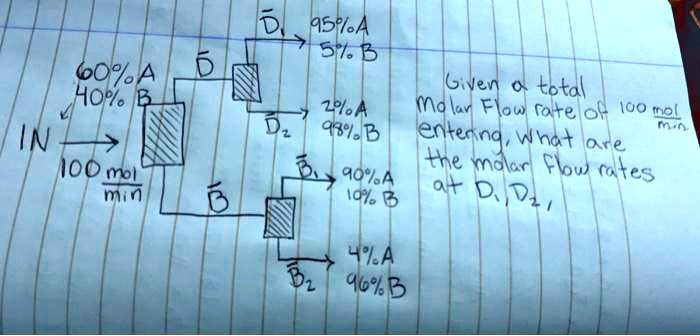 D̄₁ 95%A
5% B
60%A
40% B
D̄
2%A
D̄₂ 98%B
IN
100 mol
min
B̄
B̄₁ 90%A
10% B
4%A
B̄₂ 96%B
Given a total
Molar Flow rate of 100 mol
min
entering, what are
the molar flow rates
at D₁, D₂,